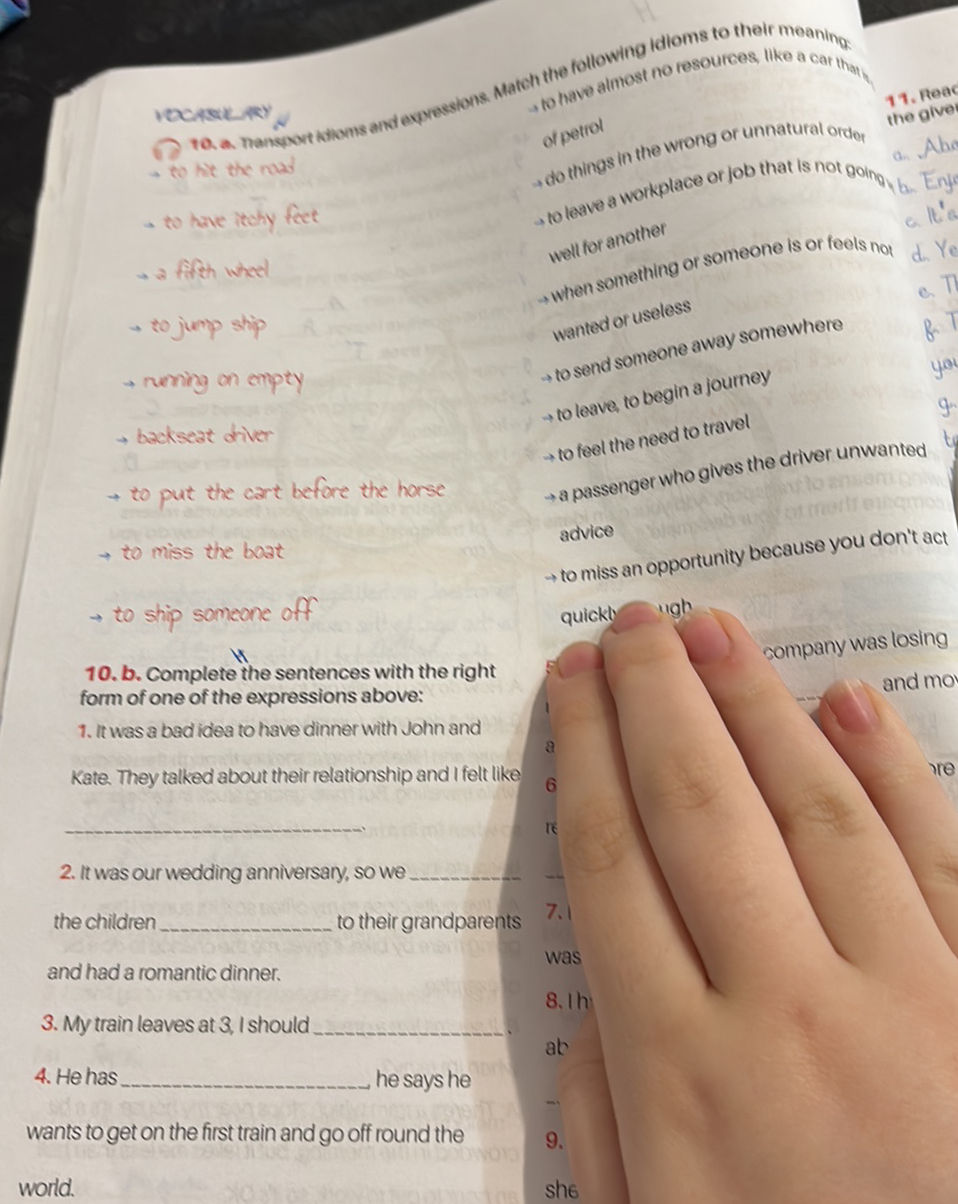 VOCABULARY
10. a. Transport idioms and expressions. Match the following idioms to their meaning:
→ to hit the road
→ to have itchy feet
→ a fifth wheel
→ to jump ship
→ running on empty
→ backseat driver
→ to put the cart before the horse
→ to miss the boat
→ to ship someone off
→ to have almost no resources, like a car that is
of petrol
→ do things in the wrong or unnatural order
→ to leave a workplace or job that is not going
well for another
→ when something or someone is or feels not
wanted or useless
→ to send someone away somewhere
→ to leave, to begin a journey
→ to feel the need to travel
→ a passenger who gives the driver unwanted
advice
→ to miss an opportunity because you don't act
quickl ugh
10. b. Complete the sentences with the right
form of one of the expressions above:
1. It was a bad idea to have dinner with John and
Kate. They talked about their relationship and I felt like
____________________.
2. It was our wedding anniversary, so we __________
the children ______________ to their grandparents
and had a romantic dinner.
3. My train leaves at 3, I should ________________.
4. He has ____________________, he says he
wants to get on the first train and go off round the
world.
5
company was losing
and mo
a
6
re
re
7. I
was
8. I h
ab
9.
she
11. Read
the give
a. Abo
b. Enjo
c. It's a
d. Ye
e. Th
f. T
you
g.
t